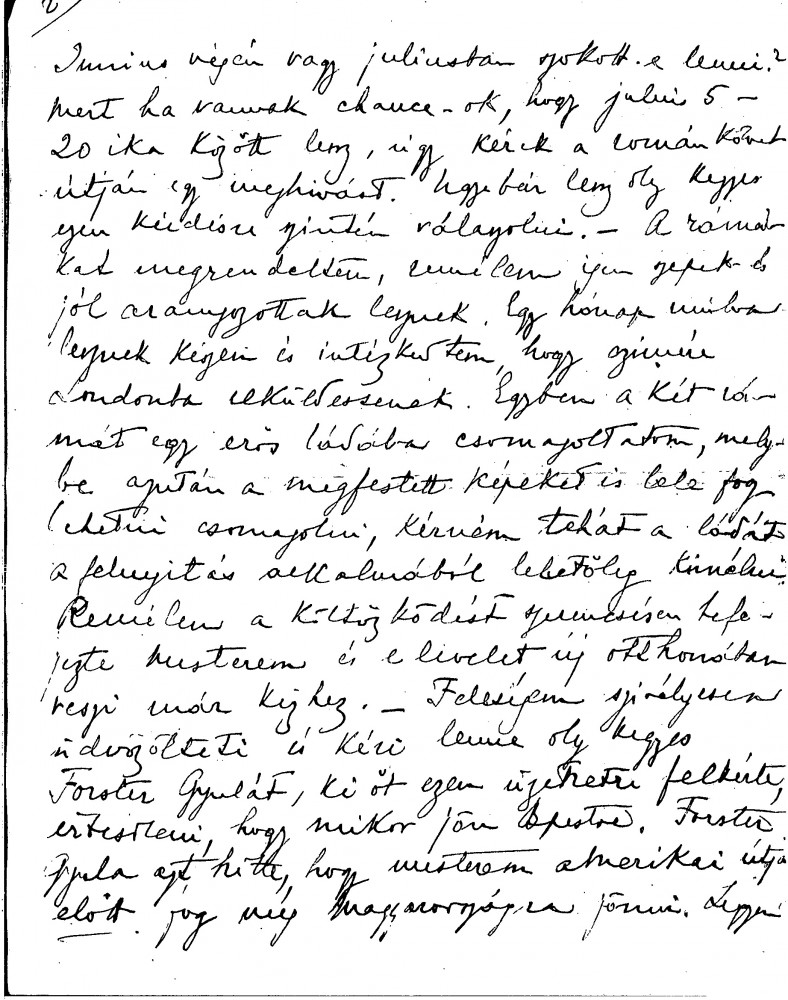 2
Junius végén vagy juliusban szokott-e lenni?
mert ha vannak chance-ok, hogy julius 5 –
20 ika között lesz, úgy kérek a román követ
útján egy meghivást. Ugyebár lesz oly kegyes
ezen kérdésre szintén válaszolni. – A rámá-
kat megrendeltem, remélem igen szépek és
jól aranyozottak lesznek. Egy hónap mulva
lesznek készen és intézkedtem, hogy czimére
Londonba elküldessenek. Egyben a két rá-
mát egy erős ládába csomagoltatom, mely-
be azután a megfestett képeket is bele fog
lehetni csomagolni, kérném tehát a ládát
a felnyitás alkalmából lehetőleg kimélni.
Remélem a költözködést szerencsésen befe-
jezte Mesterem és e levelet új otthonában
veszi már kézhez. – Feleségem szivélyesen
üdvözölteti és kéri lenne oly kegyes
Forster Gyulát, ki őt ezen üzenetre felkérte,
értesíteni, hogy mikor jön Bpestre. Forster
Gyula azt hitte, hogy mesterem amerikai útja
előtt fog még Magyarországra jönni. Legyen